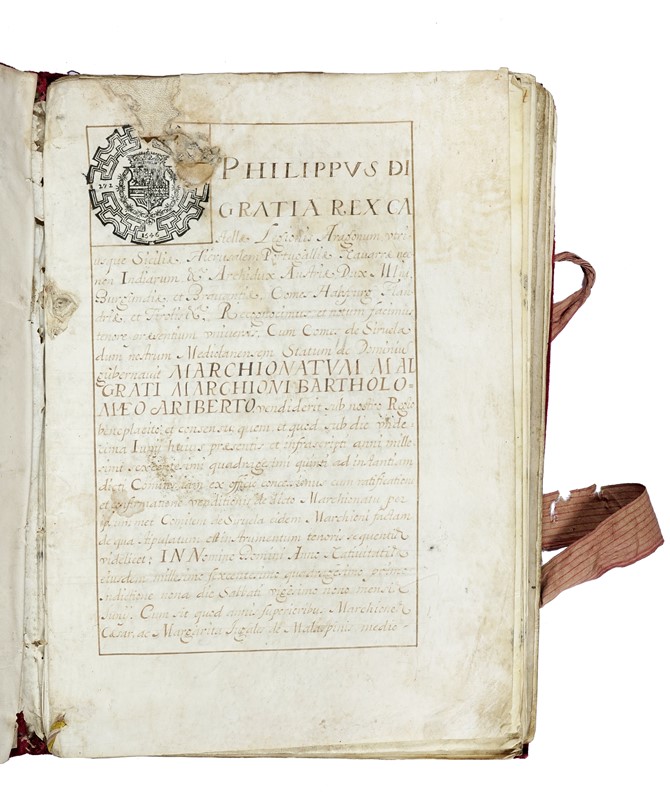 292
1646
PHILIPPVS DI
GRATIA REX CA
stellæ Legionis Aragonum utri
usque Siciliæ Hierusalem Portugalliæ Nauarræ nec
non Indiarum &c. Archidux Austriæ Dux Mlni
Burgundiæ et Brauantiæ, Comes Habspurg Flan
driæ et Tyrolis &c. Recognoscimus et notum facimus
tenore præsentium uniuersis. Cum Comes de Siruela
dum nostrum Mediolanensem Statum de
gubernauit MARCHIONATVM MAL
GRATI MARCHIONI BARTHOLO=
MÆO ARIBERTO vendiderit sub nostro Regio
beneplacito, et consensu, quem, et quod sub die
Iunij huius præsentis et infrascripti anni mille
simi sexcentesimi quadragesimi quinti ad instantiam
dicti Comitis ex officio concessimus cum ratificatione
et confirmatione venditionis de dicto Marchionatu per
ipsum met Comitem de Siruela eidem Marchioni factam
de qua stipulatum est instrumentum tenoris sequentis
videlicet; IN Nomine Domini Anno Natiuitatis
eiusdem millesimo sexcentesimo quadragesimo primo
indictione nona die Sabbati vigesimo nono mensis
Iunij. Cum sit quod annis superioribus Marchiones
Cæsar, ac Margarita Iugales de Malaspinis medio-